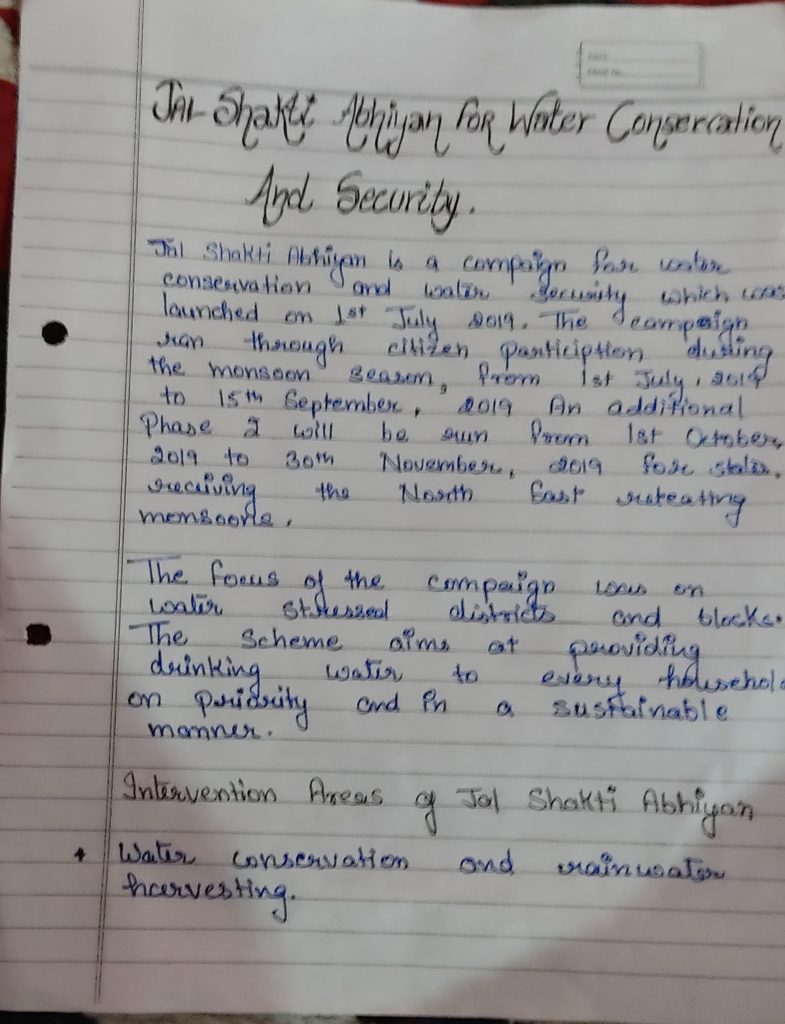 JAL Shakti Abhiyan FOR Water Consercation
And Security.
Jal Shakti Abhiyan is a campaign for water
conservation and water security which was
launched on 1st July 2019. The campaign
ran through citizen particiption during
the monsoon season, from 1st July, 2019
to 15th September, 2019 An additional
Phase 2 will be run from 1st October,
2019 to 30th November, 2019 for states.
receiving the North East reteating
monsoons.
The focus of the campaign was on
water stressed districts and blocks.
The scheme aims at providing
drinking water to every household
on priority and in a sustainable
manner.
Intervention Areas of Jal Shakti Abhiyan
Water conservation and rainwater
harvesting.